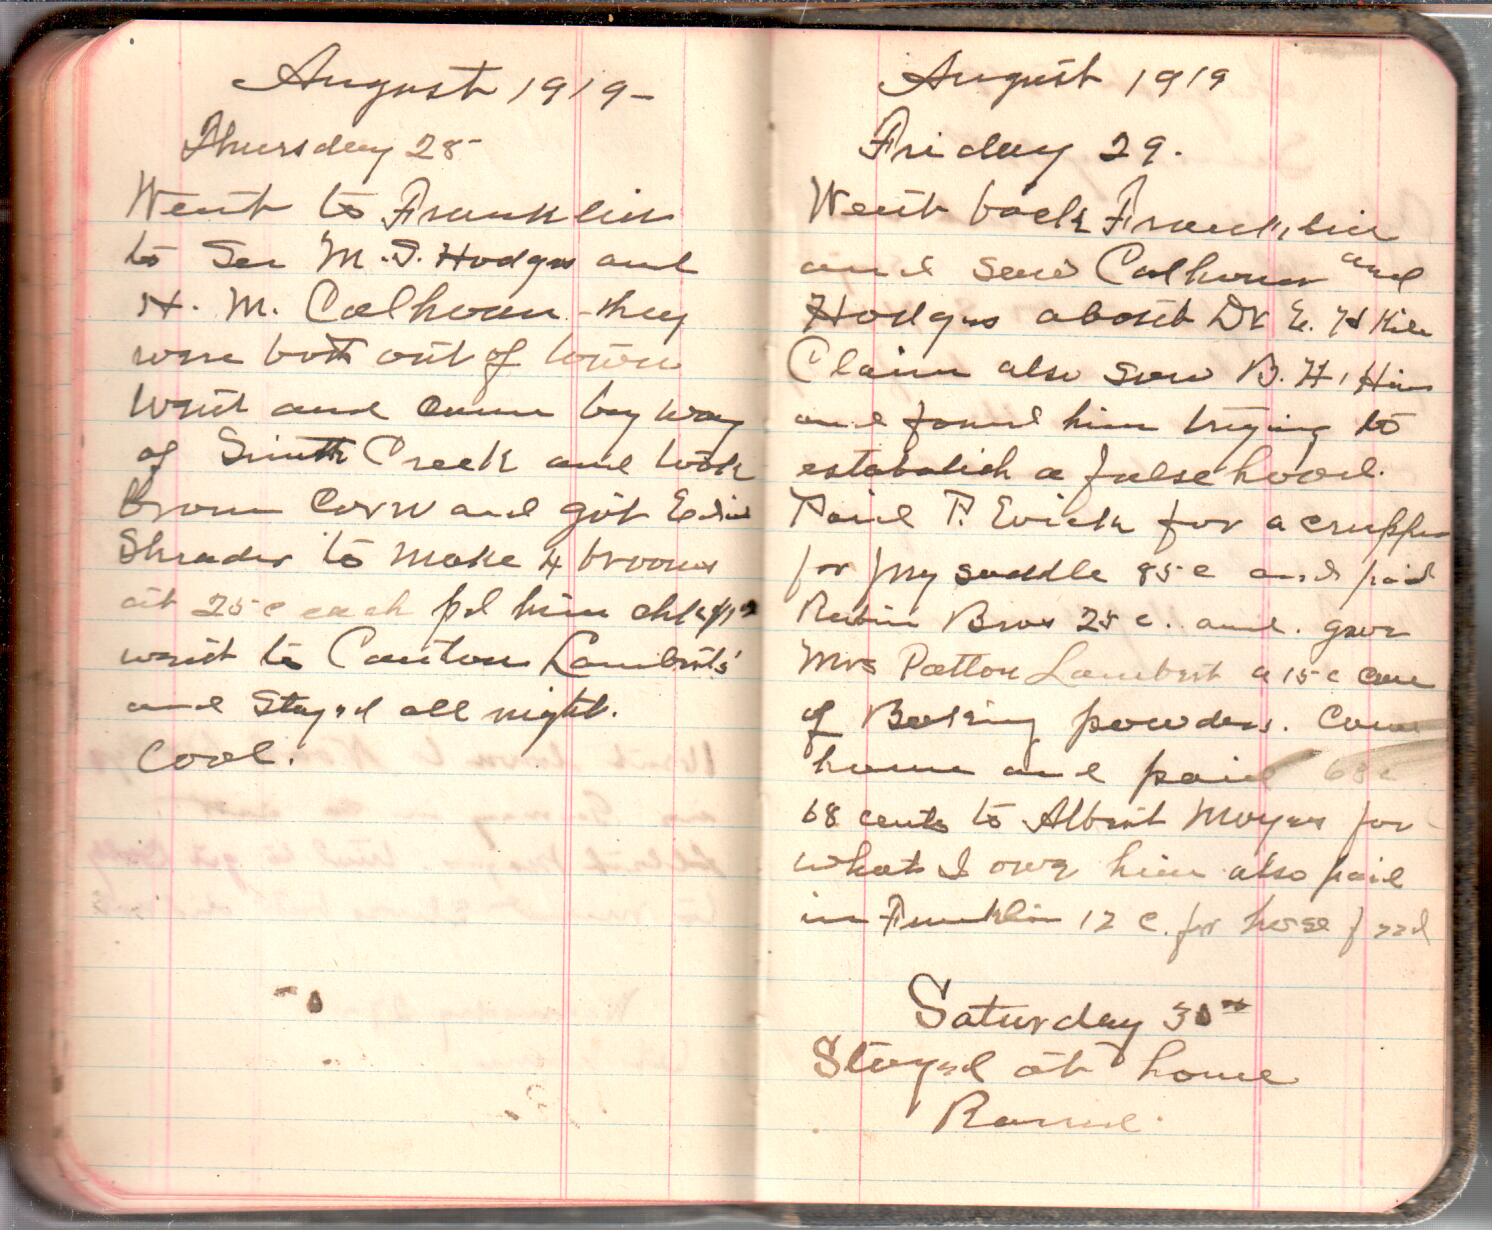 August 1919-
Thursday 28
Went to Franklin
to See M. S. Hodges and
H. M. Calhoun they
were both out of town
Went and came by way
of Smith Creek and took
Broom Corn and got
Shrader to make 4 brooms
at 25 c each pd him
went to Canton Lamberts'
and Stayed all night.
Cool.
August 1919
Friday 29.
Went back Franklin
and saw Calhoun and
Hodges about Dr E. H
Claim also saw B. H.
and found him trying to
establish a false hood.
Paid P. Evick for a crupper
for my saddle 85 c and paid
Bros 25 c. and gave
Mrs Patton Lambert a 15 c can
of Baking powders. Came
home and paid 68 c
68 cents to Albert Moyers for
what I owe him also paid
in Franklin 12 c. for horse feed
Saturday 30th
Stayed at home
Rained.